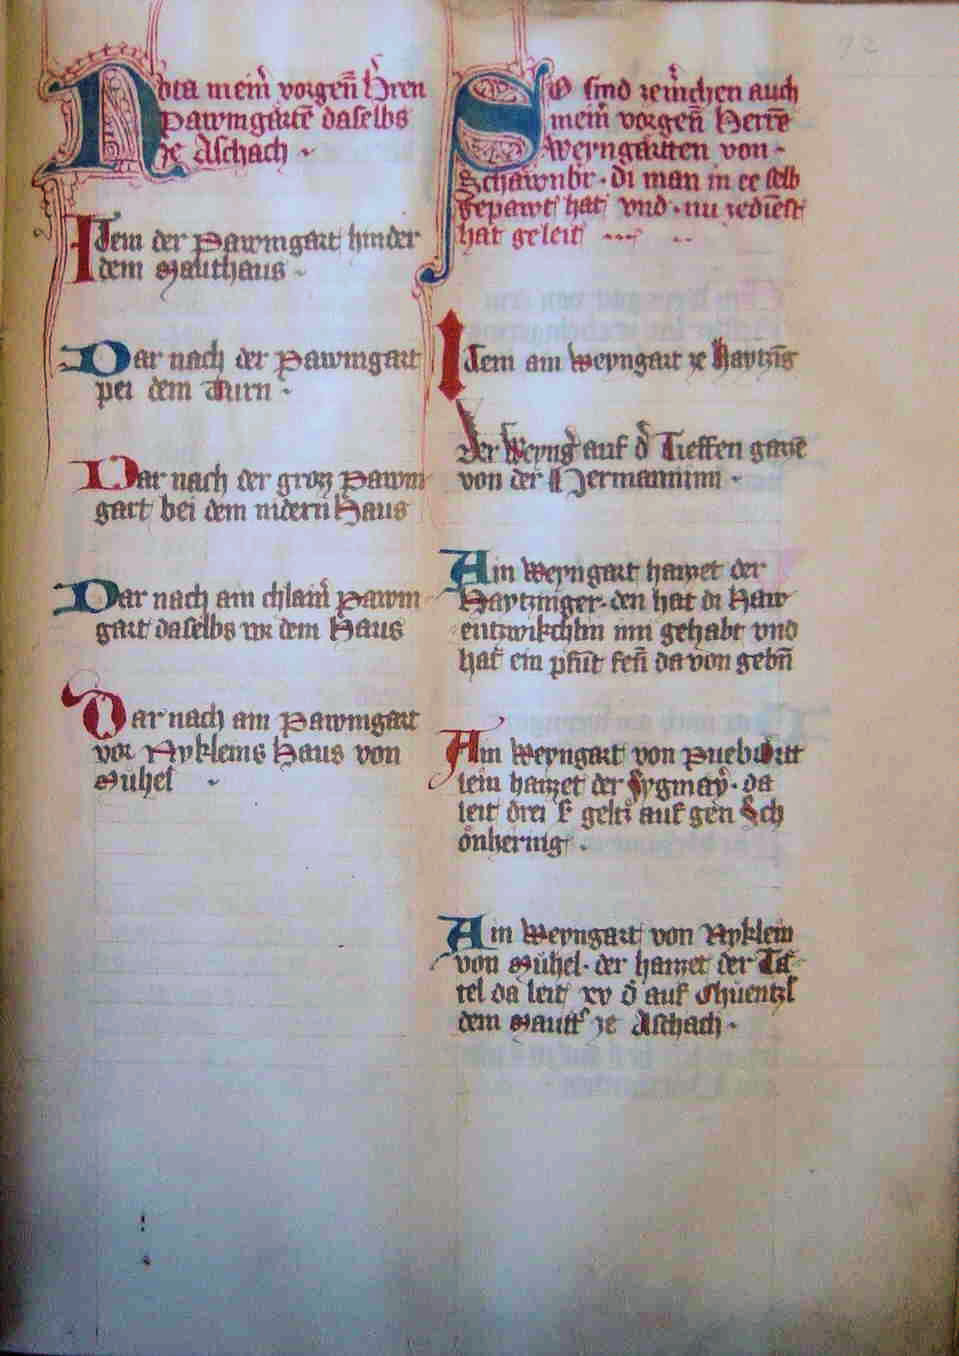 Nota meinr̄ vorgen̄ Hˀren
Pawmgartē daselbs
ze Aschach
Item der Pawmgart hinder
dem Mauthaus
Dar nach der Pawmgart
pei dem Turn
Dar nach der groz Pawm
gart bei dem nidern Haus
Dar nach ain chlainˀ Pawm
gart daselbs vor dem Haus
Dar nach ain Pawmgart
vor Nykleins Haus von
Mühel
So sind ze auch
meinˀ vorgen̄ Herrē
Weyngärtten von
Schawnbˀ. di man in ee selb
gepawt hat vnd nu ze dienst
hat geleit
Item ain Weyngart ze
Der Weyngˀ auf dˀ Tieffen
von der Hermaninn
Ain Weyngart haizzet der
Haytzinger. den hat di Haw
inn gehabt vnd
hat ein pfūt fen̄ da von gebn̄
Ain Weyngart von
lein haizzet der
leit drei gelts auf gen Sch
önhering
Ain Weyngart von Nyklein
von Mühel. der haizzet der Ta
tel da leit xv dˀ auf Chuentzl
dem Mauttˀ ze Aschach
92